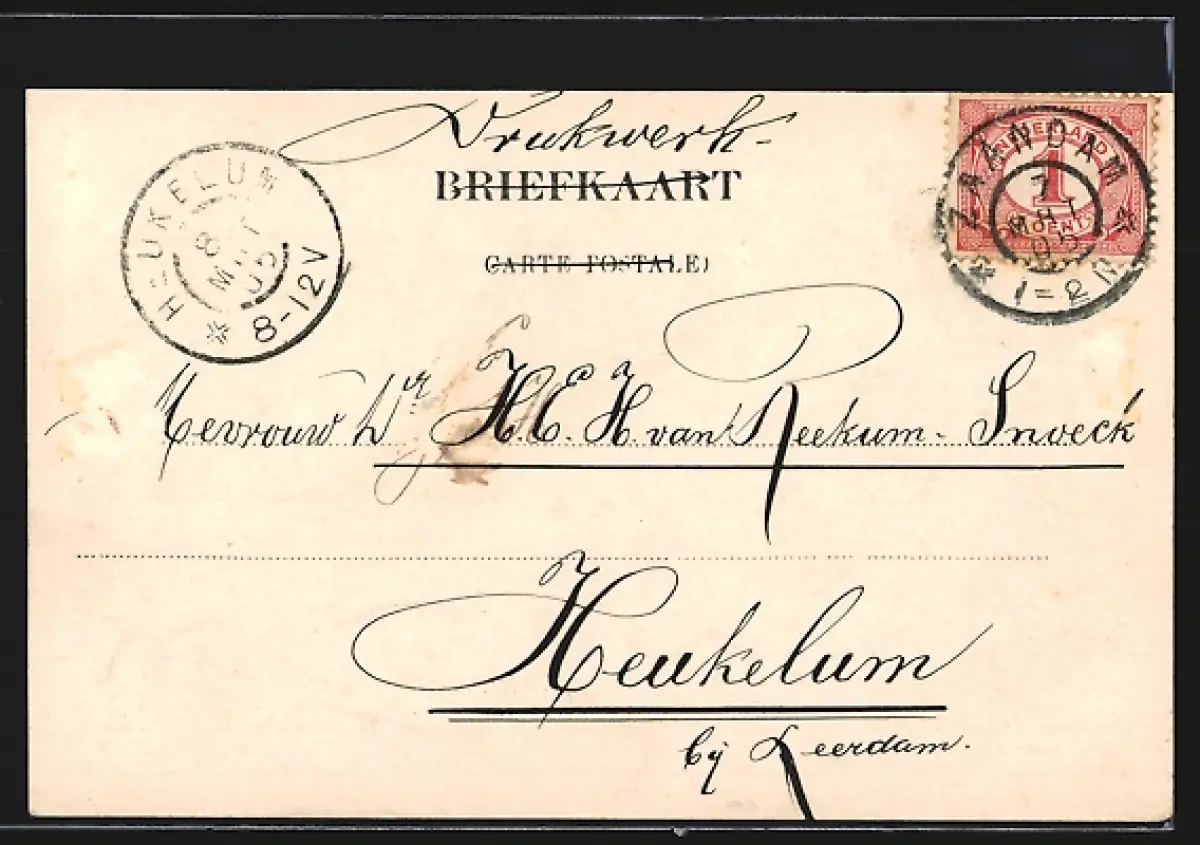 Drukwerk-
BRIEFKAART
CARTE POSTALE)
HEUKELUM
8 MEI 05
8-12V
NEDERLAND
1
CENT
ZAANDAM
7 MEI 05
1-2N
Mevrouw Wr H.E.H. van Reekum-Snoeck
Heukelum
bij Leerdam.